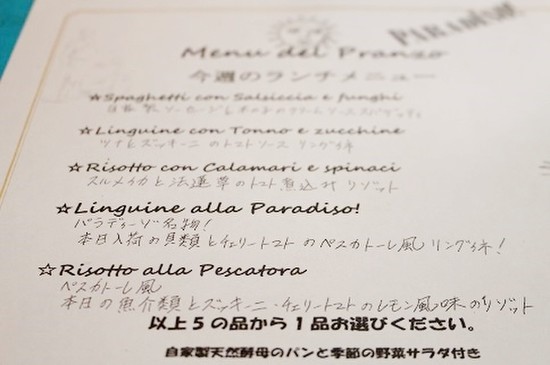 PARADISO!
Menu del Pranzo
今週のランチメニュー
☆Spaghetti con Salsiccia e funghi
自家製ソーセージときのこのクリームソーススパゲッティ
☆Linguine con Tonno e zucchine
ツナとズッキーニのトマトソース リングイネ
☆Risotto con Calamari e spinaci
スルメイカと法蓮草のトマト煮込み リゾット
☆Linguine alla Paradiso!
パラディーゾ名物!
本日入荷の貝類とチェリートマトのペスカトーレ風 リングイネ!
☆Risotto alla Pescatora
ペスカトーレ風
本日の魚介類とズッキーニ・チェリートマトのレモン風味のリゾット
以上5の品から1品お選びください。
自家製天然酵母のパンと季節の野菜サラダ付き